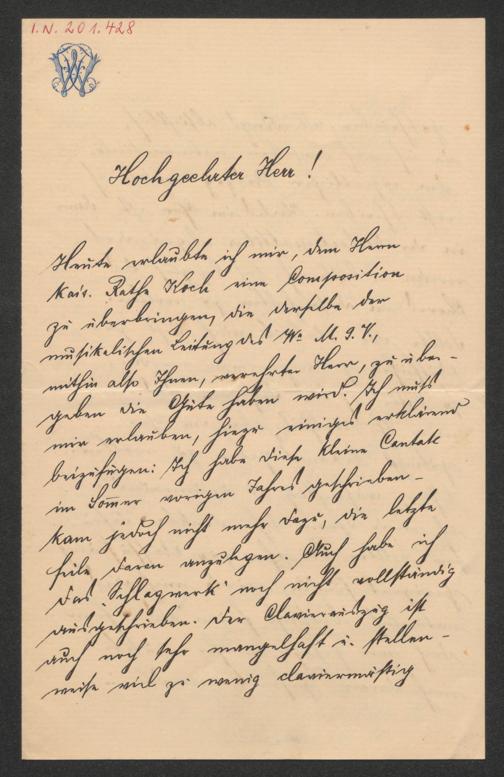 I.N. 201.428
W
Hochgeehrter Herr!
Heute erlaubte ich mir, dem Herrn
Kais. Rathe Koch eine Composition
zu überbringen, die derselbe der
musikalischen Leitung des Wr M. G. V.,
mithin also Ihnen, verehrter Herr, zu über-
geben die Güte haben wird. Ich muß
mir erlauben, hiezu einiges erklärend
beizufügen: Ich habe diese kleine Cantate
im Som̅er vorigen Jahres geschrieben –
kam jedoch nicht mehr dazu, die letzte
Feile daran anzulegen. Auch habe ich
das „Schlagwerk“ noch nicht vollständig
ausgeschrieben. Der Clavierauszug ist
auch noch sehr mangelhaft u. stellen-
weise viel zu wenig claviermäßig